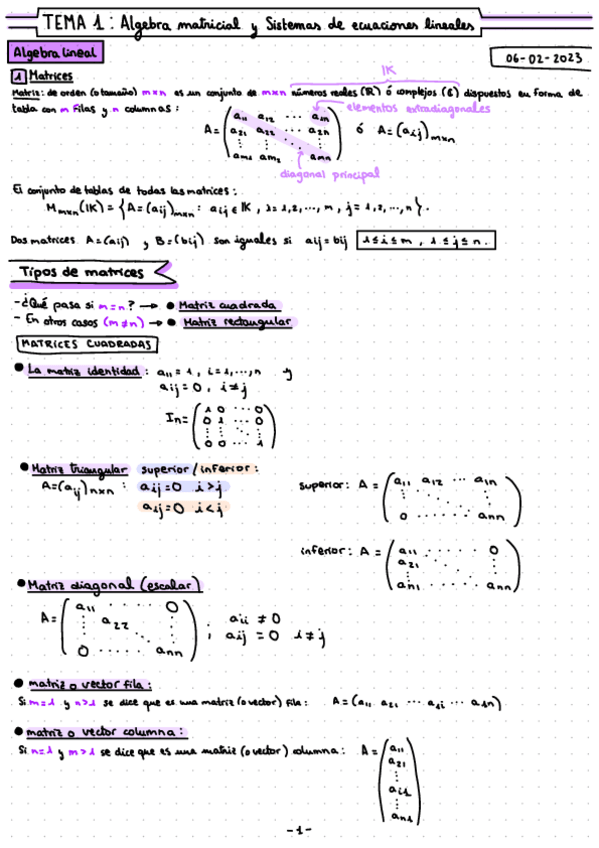 TEMA 1: Algebra matricial y Sistemas de ecuaciones lineales
Algebra lineal
06-02-2023
1 Matrices
IK
Matriz: de orden (o tamaño) m×n es un conjunto de m×n números reales (ℝ) ó complejos (ℂ) dispuestos en forma de
tabla con m filas y n columnas:
elementos extradiagonales
A = ( a11 a12 ... a1n
a21 a22 ... a2n
: : ... :
am1 am2 ... amn ) ó A=(aij)m×n
diagonal principal
El conjunto de tablas de todas las matrices:
Mm×n(IK) = { A=(aij)m×n : aij ∈ IK, i=1,2,...,m, j=1,2,...,n }.
Dos matrices A=(aij) y B=(bij) son iguales si aij=bij 1≤i≤m, 1≤j≤n.
Tipos de matrices
-¿Qué pasa si m=n? → • Matriz cuadrada
- En otros casos (m≠n) → • Matriz rectangular
MATRICES CUADRADAS
• La matriz identidad: a11=1, i=1,...,n y
aij=0, i≠j
In= ( 1 0 ... 0
0 1 ... 0
: : ... :
0 0 ... 1 )
• Matriz triangular superior/inferior:
A=(aij)n×n : aij=0 i>j
aij=0 i<j
superior: A = ( a11 a12 ... a1n
: ... :
0 ...... ann )
inferior: A = ( a11 ...... 0
a21 ... :
: ... :
an1 ...... ann )
• Matriz diagonal (escalar)
A= ( a11 ...... 0
: a22 ... :
: ... :
0 ...... ann ) ; aii ≠ 0
aij = 0 i≠j
• matriz o vector fila:
Si m=1 y n>1 se dice que es una matriz (o vector) fila: A=(a11 a21 ... a1i ... a1n)
• matriz o vector columna:
Si n=1 y m>1 se dice que es una matriz (o vector) columna: A = ( a11
a21
:
ai1
:
an1 )
-1-